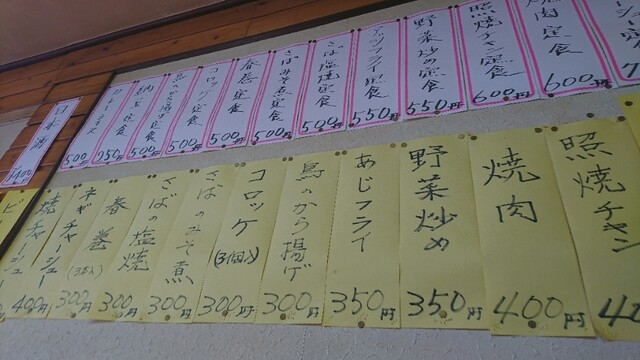 焼肉定食
600円
照焼チキン定食
600円
野菜炒め定食
550円
アジフライ定食
550円
さば塩焼定食
500円
さばみそ煮定食
500円
春巻定食
500円
コロッケ定食
500円
鳥のから揚げ定食
500円
納豆定食
500円
350円
500円
日本酒
400円
照焼チキン
焼肉
400円
野菜炒め
350円
あじフライ
350円
鳥のから揚げ
300円
コロッケ
(3個入)
300円
さばのみそ煮
300円
さばの塩焼
300円
春巻
(3本入)
300円
ネギチャーシュー
300円
焼チャーシュー
400円
ビ